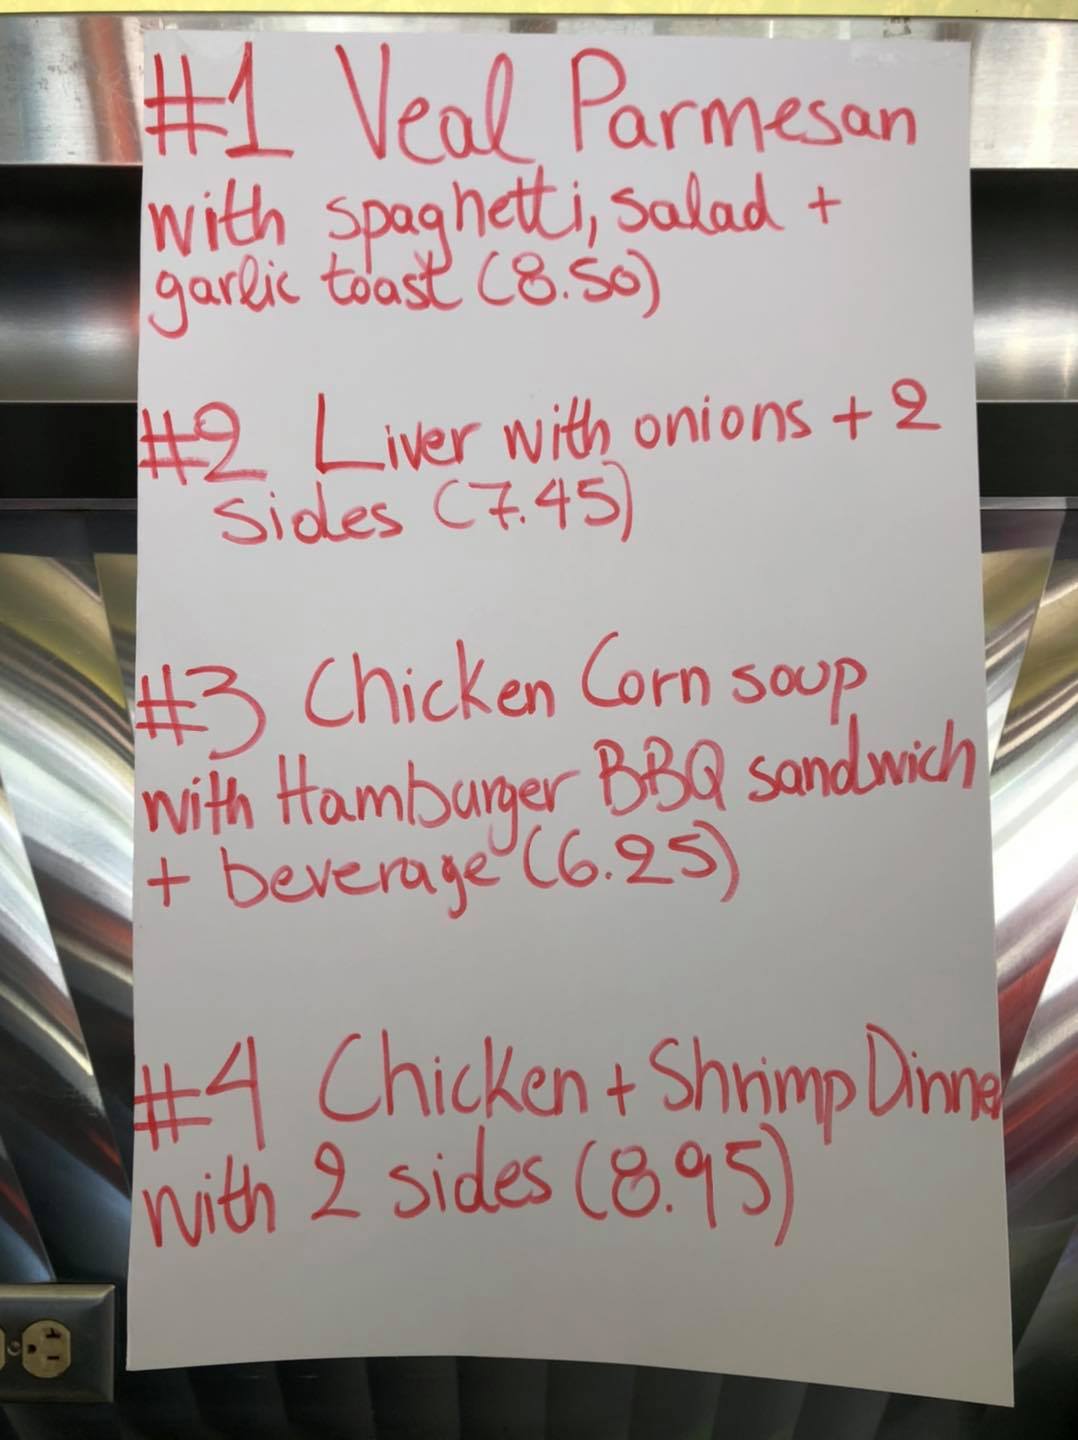 #1 Veal Parmesan
with spaghetti, salad +
garlic toast (8.50)
#2 Liver with onions + 2
sides (7.45)
#3 Chicken Corn soup
with Hamburger BBQ sandwich
+ beverage (6.25)
#4 Chicken + Shrimp Dinner
with 2 sides (8.95)